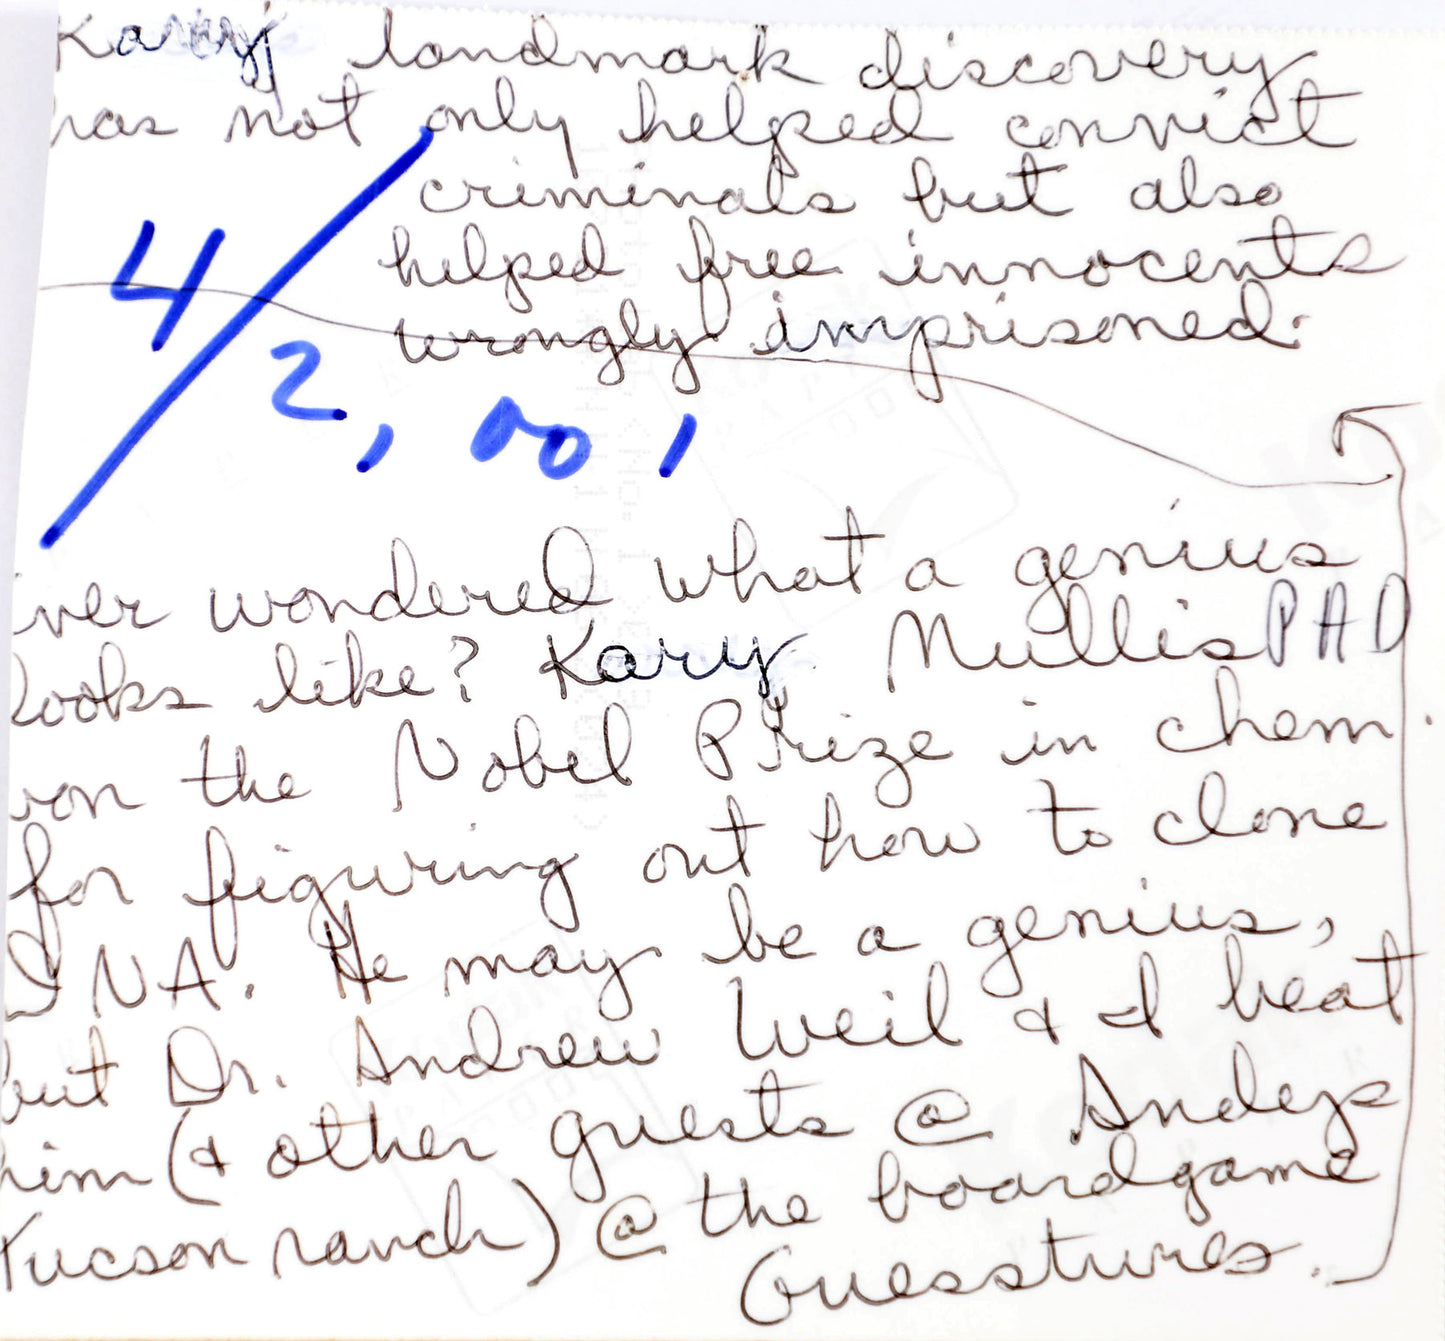 Kary's landmark discovery
has not only helped convict
criminals but also
helped free innocents
wrongly imprisoned.
4/2,001
ver wondered what a genius
looks like? Kary Mullis PHD
won the Nobel Prize in chem.
for figuring out how to clone
DNA. He may be a genius,
but Dr. Andrew Weil & I beat
him (& other guests @ Andeys
Tucson ranch) @ the boardgame
Guesstures.